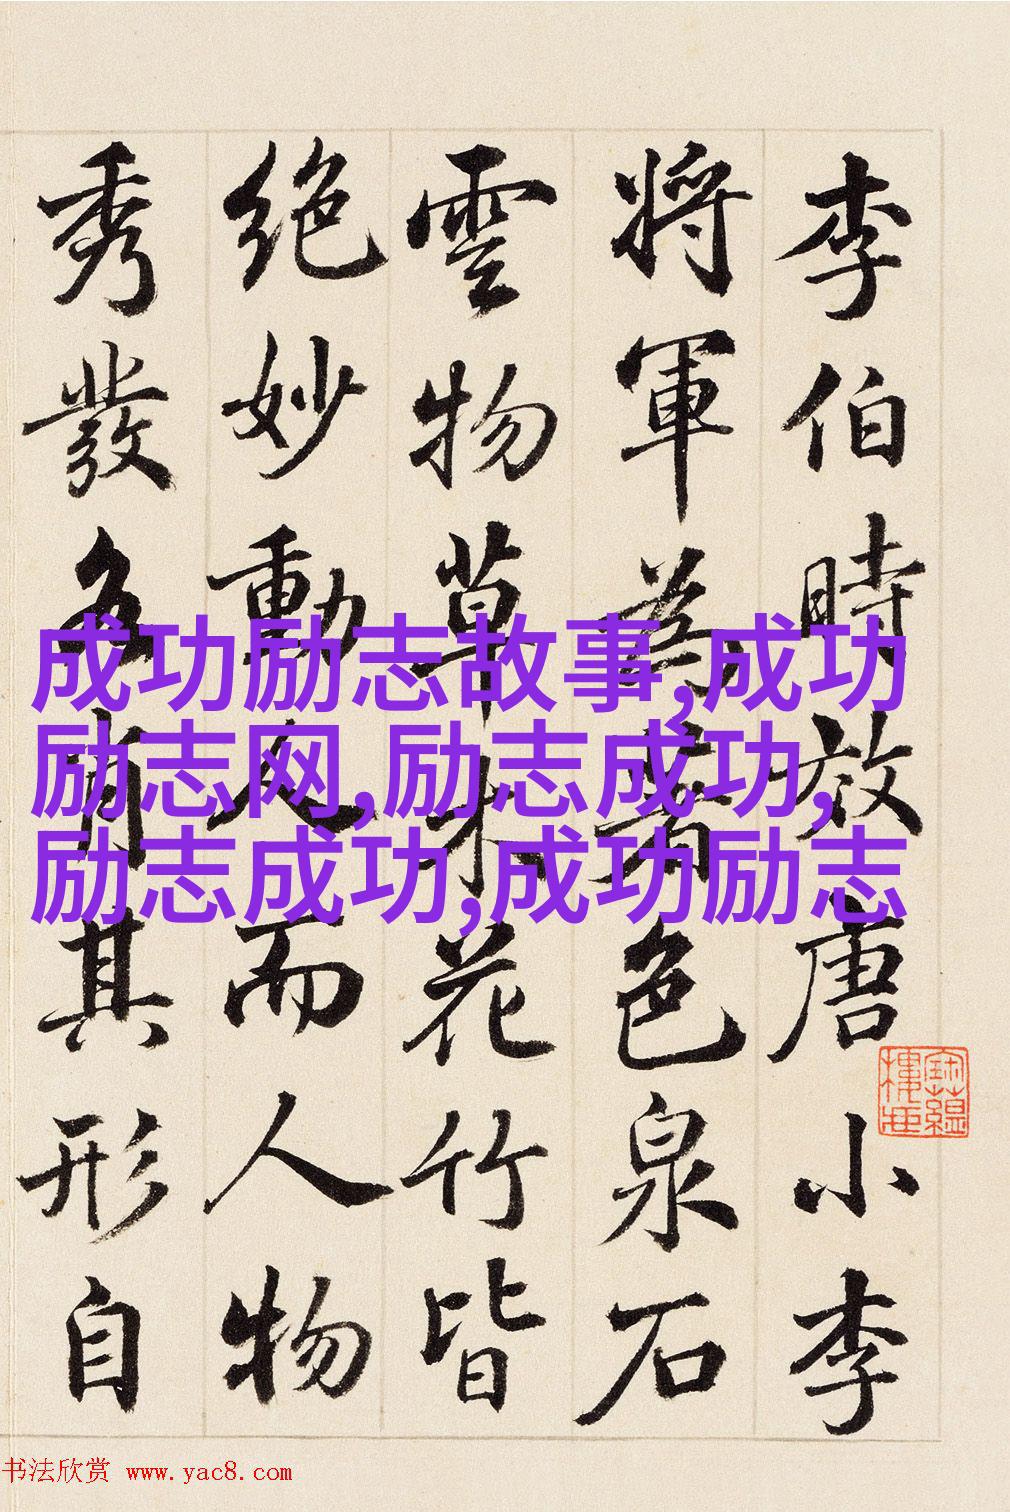 李伯時效唐小李
將軍為著色泉石
雲物草木花竹皆
絕妙動人而人物
秀發各肖其形自
成功励志故事,成功
励志网,励志成功,
励志成功,成功励志
书法欣赏 www.yac8.com